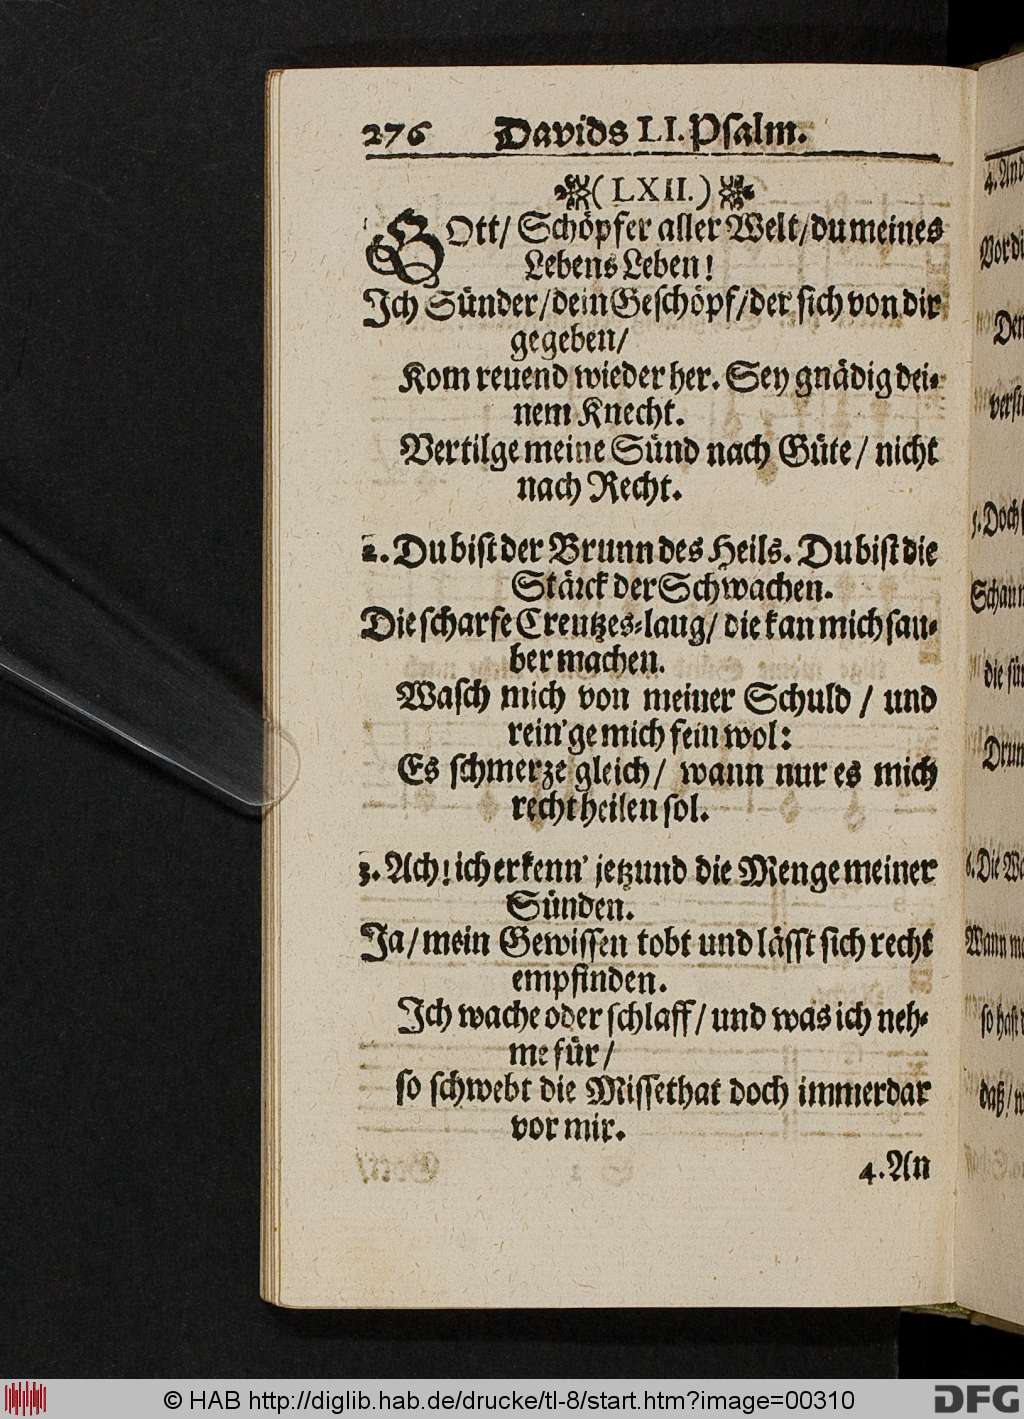 276 Davids LI. Psalm.
(LXII.)
GOtt/ Schöpfer aller Welt/du meines
Lebens Leben!
Ich Sünder/dein Geschöpf/der sich von dir
gegeben/
Kom reuend wieder her. Sey gnädig dei-
nem Knecht.
Vertilge meine Sünd nach Güte/ nicht
nach Recht.
2. Du bist der Brunn des Heils. Du bist die
Stärck der Schwachen.
Die scharfe Creutzes-laug/ die kan mich sau-
ber machen.
Wasch mich von meiner Schuld / und
rein'ge mich fein wol:
Es schmerze gleich/ wann nur es mich
recht heilen sol.
3. Ach! ich erkenn' jetzund die Menge meiner
Sünden.
Ja/mein Gewissen tobt und lässt sich recht
empfinden.
Ich wache oder schlaff/ und was ich neh-
me für/
so schwebt die Missethat doch immerdar
vor mir.
4. An
4. And
Vor di
Den
verst
5. Doch
Schau n
die sün
Drun
6. Die Wa
Wann me
so hast
daß/ w
© HAB http://diglib.hab.de/drucke/tl-8/start.htm?image=00310
DFG